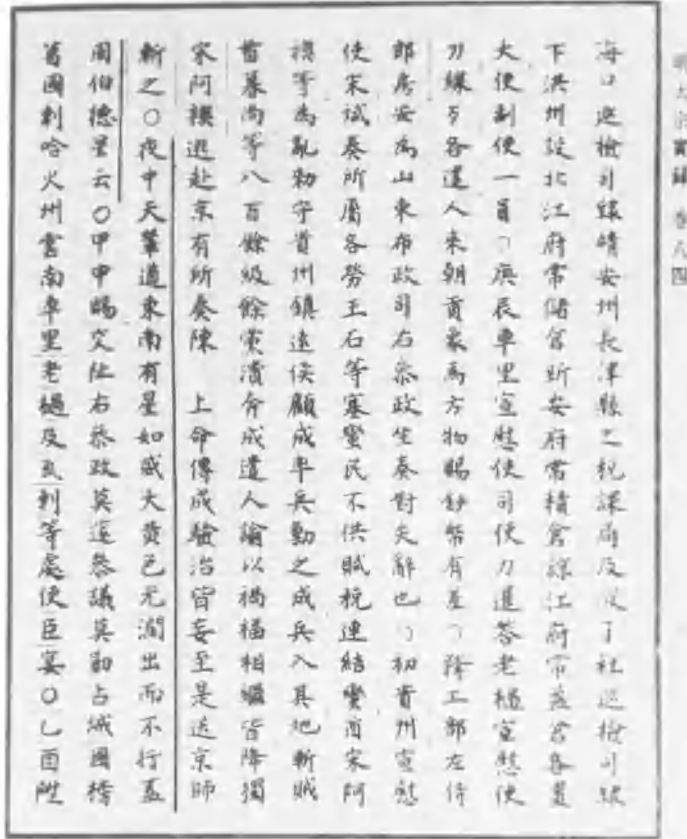 明太宗實錄 卷八四
海口巡檢司線晴安州長津縣之稅課局及促了社巡檢司線
下洪州設北江府常儲倉新安府常積倉諒江府常盈倉各置
大使副使一員○庚辰車里宣慰使司使刀暹答老撾宣慰使
刀線歹各遣人來朝貢象馬方物賜鈔幣有差○降工部左侍
郎房安為山東布政司右叅政坐奏對失辭也○初貴州宣慰
使宋斌奏所屬各勞王石等寨蠻民不供賦稅連結蠻酋宋阿
襖等為亂勑守貴州鎮遠侯顧成率兵勦之成兵入其地斬賊
首慕尚等八百餘級餘黨潰奔成遣人諭以禍福相繼皆降獨
宋阿襖逃赴京有所奏陳 上命傳成驗治皆妄至是送京師
斬之○夜中天輦道東南有星如盞大黃色光潤出而不行蓋
周伯德星云○甲申賜交阯右叅政莫邃叅議莫勛占城國榜
葛國剌哈火州雲南車里老撾及瓦剌等處使臣宴○乙酉陞